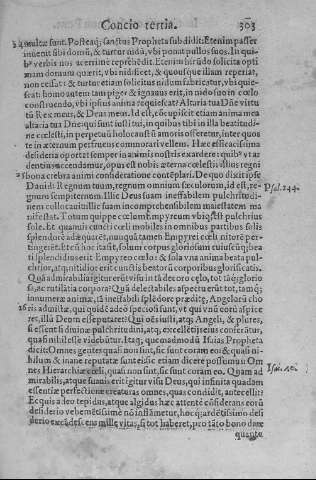 Concio tertia. 303
multæ sunt. Posteaq; sanctus Propheta subdidit: Etenim passer
inuenit sibi domũ, & turtur nidũ, vbi ponat pullos suos. In qui-
bº verbis nos acerrimè reprehẽdit. Etenim hirũdo solicita opti
mam domum quærit, vbi nidificet, & quousque illam reperiat,
non cessat: & turtur etiam solicitus nidum fabricatur, vbi quie-
scat: homo autem tam piger & ignauus erit, in nido suo in cœlo
construendo, vbi ipsius anima requiescat? Altaria tua Dñe virtu
tũ Rex meus, & Deus meus. Id est, cõcupiscit etiam anima mea
altaria tua Dñe: qui sunt iusti tui, in quibus tibi in illa beatitudi-
ne cœlesti, in perpetuũ holocausti amoris offeretur, inter quos
te in æternum perfrueus commorari vellem. Hæc efficacissima
desideria oportet semper in animis nostris exardere: quibº vt ar
dentius accendamur, opus est nobis æterna cœlestis illius regni
bona crebra animi consideratione contẽplari. De quo dixit ipse
Dauid: Regnum tuum, regnum omnium sæculorum, id est, re-
gnum sempiternum. Illic Deus suam ineffabilem pulchritudi-
nem collocauit: illic suam incomprehensibilem maiestatem ma
nifestat. Totum quippe cœlum Empyreum vbiq; est pulchrius
sole. Et quamuis cuncti cœli mobiles in omnibus partibus solis
splendorẽ adæquent, nunquã tamen Empyrei cœli nitorẽ per-
tingerẽt. Etenĩ hoc tacito, solum corpus gloriosum cuiuscũq; bea
ti splendidius erit Empyreo cœlo: & sola vna anima beata pul-
chrior, atq; nitidior erit cunctis beatorũ corporibus glorificatis.
Quã admirabilis igitur erit visu in tã decoro cęlo, tot tãq; glorio
si, ac rutilatia corpora? Quã delectabilis aspectu erũt tot, tamq;
innumeræ animæ, tã ineffabili splẽdore præditę, Angelorũ cho
ris admistæ, qui quidẽ adeò speciosi sunt, vt qui vnũ eorũ aspice
ret, illũ Deum esse putaret? Qui cõ si iustis, atq; Angelis, & plures,
si essent à diuinæ pulchritudini, atq; excellẽtię eius conferãtur,
quasi nihil esse videbũtur. Itaq; quemadmodũ Isaias Propheta
dicit: Omnes gentes quasi non sint, sic sunt coram eo: & quasi ni-
hilum & inane reputatæ sunt ei: sic etiam dicere possumus: Om
nes Hierarchiæ cœli, quasi non sint, sic sunt coram eo. Quam ad
mirabilis, atque suauis erit igitur visu Deus, qui infinita quadam
essentiæ perfectione creaturas omnes, quas condidit, antecellit?
Ecquis adeo tepidus, atque algidus hæc attentè cõsiderans eorũ
desiderio vehemẽtissimè nõ inflãmetur, hoc q; ardẽtissimo desi
derio excãdescens mille vitas, si tot haberet, pro tãto bono dare
quante
24
25
26
Psal. 144.
Isai. 40.